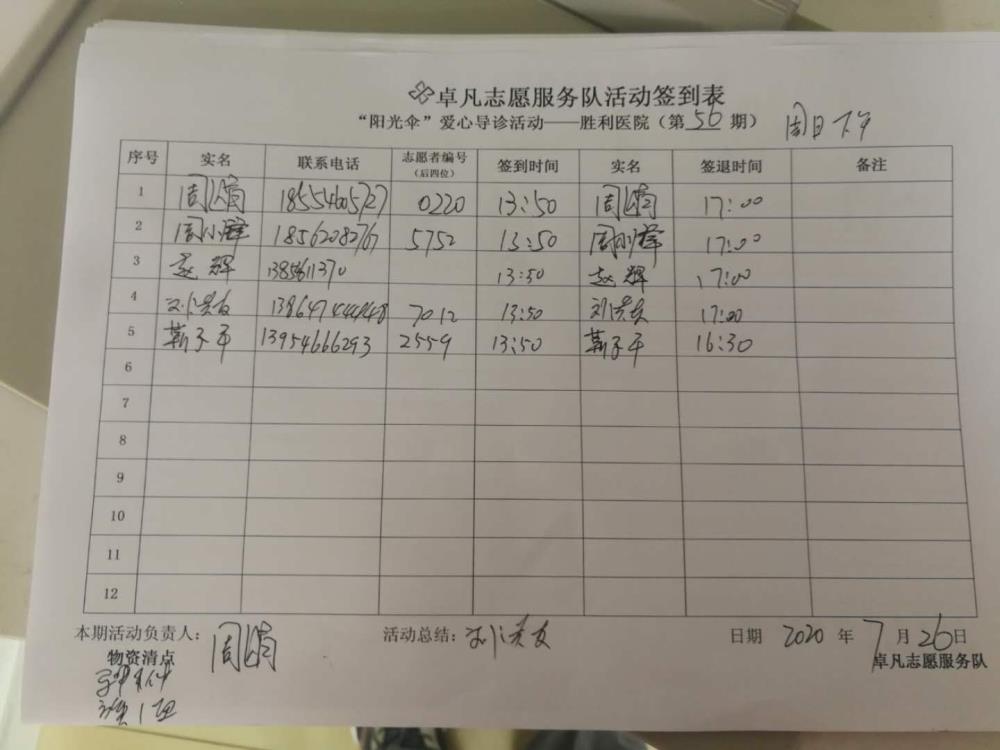 卓凡志愿服务队活动签到表
“阳光伞”爱心导诊活动——胜利医院（第56期） 周日下午
序号 实名 联系电话 志愿者编号（后四位） 签到时间 实名 签退时间 备注
1 周娟 18554605727 0220 13:50 周娟 17:00
2 周小峰 18562082767 5752 13:50 周小峰 17:00
3 赵辉 13:50 赵辉 17:00
4 刘洪友 7012 13:50 刘洪友 17:00
5 靳子平 13954666293 2559 13:50 靳子平 16:30
6
7
8
9
10
11
12
本期活动负责人：周娟 活动总结：刘洪友 日期 2020 年 7 月 26 日
物资清点 卓凡志愿服务队